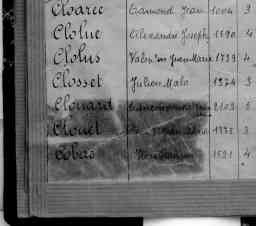 Cloarec Edmond Jean 1004 3
Cloluc Alexandre Joseph 1590 4
Clolus Valentin Jean Marie 1739 4
Closset Julien Malo 1374 3
Clouard 2109 5
Clouet 1335 3
Cobac 1591 4